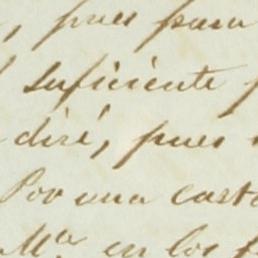 , pues para
suficiente
diré, pues
Por una carta
M.ª en los